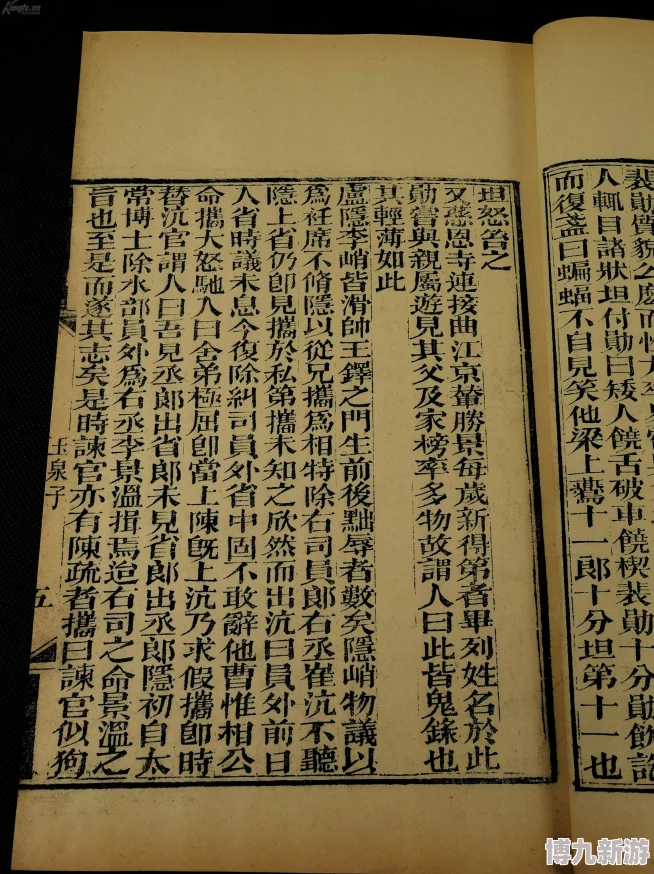 裴勛質貌么麽而性尤率
人輒目諸狀坦付勛曰矮人饒舌破車饒楔裴勛十分勛飲訖
而復盞曰蝙蝠不自見笑他梁上鷰十一郎十分坦第十一也
坦怒笞之
又慈恩寺連接曲江京輦勝景每歲新得第者畢列姓名於此
勛嘗與親屬遊見其父及家榜率多物故謂人曰此皆鬼錄也
其輕薄如此
盧隱李峭皆滑帥王鐸之門生前後黜辱者數矣隱峭物議以
爲衽席不脩隱以從兄攜爲相特除右司員郎右丞崔沆不聽
隱上省仍卽見攜於私第攜未知之欣然而出沆曰員外前日
入省時議未息今復除糾司員外省中固不敢辭他曹惟相公
命攜大怒馳入曰舍弟極屈卽當上陳旣上沆乃求假攜卽時
替沆官謂人曰吾見丞郎出省郎未見省郎出丞郎隱初自太
常博士除水部員外爲右丞李景溫揖焉迨右司之命景溫之
旨也至是而遂其志矣是時諫官亦有陳疏者攜曰諫官似狗
玉泉子
五
博九新游